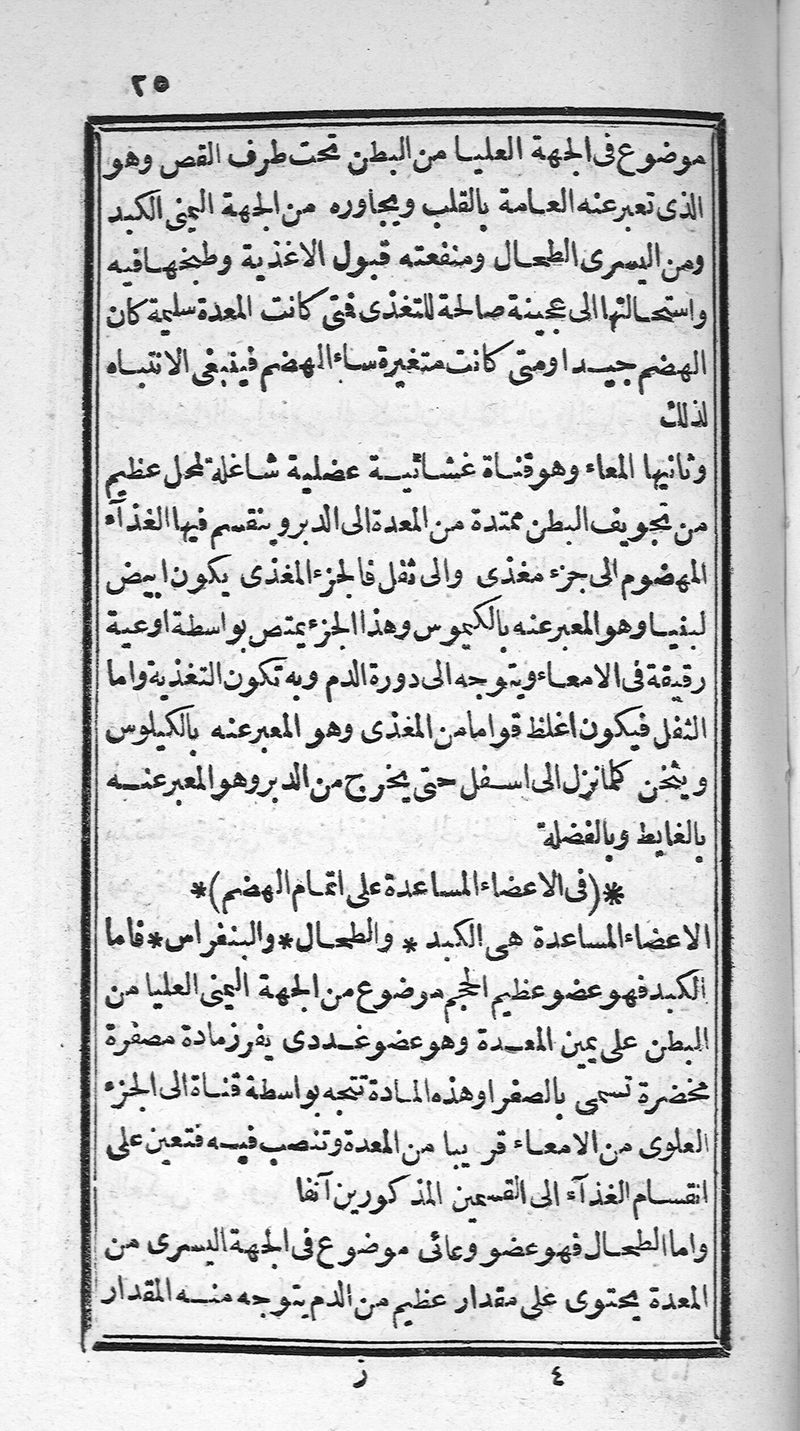 ٢٥
موضوع فى الجهة العليا من البطن تحت طرف القص وهو
الذى تعبر عنه العامة بالقلب ويجاوره من الجهة اليمنى الكبد
ومن اليسرى الطحال ومنفعته قبول الاغذية وطبخها فيه
واستحالتها الى عجينة صالحة للتغذى فتى كانت المعدة سليمة كان
الهضم جيدا ومتى كانت متغيرة ساء الهضم فينبغى الانتباه
لذلك
وثانيها المعاء وهو قناة غشائية عضلية شاغلة لمحل عظيم
من تجويف البطن ممتدة من المعدة الى الدبر وينقسم فيها الغذآء
المهضوم الى جزء مغذى والى ثفل فالجزء المغذى يكون ابيض
لبنيا وهو المعبر عنه بالكيموس وهذا الجزء يمتص بواسطة اوعية
رقيقة فى الامعاء ويتوجه الى دورة الدم وبه تكون التغذية واما
الثفل فيكون اغلظ قواما من المغذى وهو المعبر عنه بالكيلوس
ويثخن كلما نزل الى اسفل حتى يخرج من الدبر وهو المعبر عنه
بالغايط وبالفضلة
*(فى الاعضاء المساعدة على اتمام الهضم)*
الاعضاء المساعدة هى الكبد * والطحال * والبنفراس * فاما
الكبد فهو عضو عظيم الحجم موضوع من الجهة اليمنى العليا من
البطن على يمين المعدة وهو عضو غددى يفرز مادة مصفرة
مخضرة تسمى بالصفرا وهذه المادة تتجه بواسطة قناة الى الجزء
العلوى من الامعاء قريبا من المعدة وتنصب فيه فتعين على
انقسام الغذآء الى القسمين المذكورين آنفا
واما الطحال فهو عضو وعائى موضوع فى الجهة اليسرى من
المعدة يحتوى على مقدار عظيم من الدم يتوجه منه المقدار
٤ ز